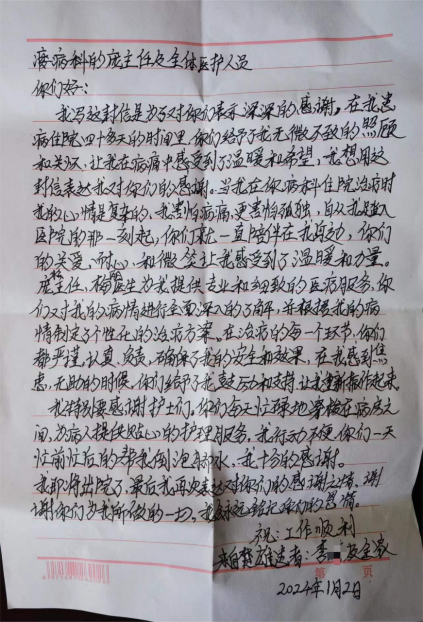 疼病科的庞主任及全体医护人员
你们好:
我写这封信是为了对你们表示深深的感谢。在我患
病住院四十多天的时间里,你们给予了我无微不致的照顾
和关怀,让我在病痛中感受到了温暖和希望,我想用这
封信表达我对你们的感谢。当我在你病科住院治疗时
我的心情是复杂的,我害怕病痛,更害怕孤独,自从我进入
医院的那一刻起,你们就一直陪伴在我身边,你们
的关爱、耐心、和微笑让我感受到了温暖和力量。
庞主任,杨医生为我提供专业和细致的医疗服务,你
们对我的病情进行全面深入的了解,并根据我的病
情制定了个性化的治疗方案。在治疗的每一个环节,你们
都严谨、认真、负责,确保了我的安全和效果,在我感到焦
虑,无助的时候,你们给予了我鼓励和支持,让我重新振作起来。
我特别要感谢护士们,你们每天忙碌地穿梭在病房之
间,为病人提供贴心的护理服务,我行动不便,你们一天
忙前忙后的帮我倒泡脚水,我十分的感谢。
我即将出院了,最后我再次表达对你们的感谢之情。谢
谢你们为我所做的一切,我永远记你们的恩情。
祝:工作顺利
来自楚雄患者:李 及全家
第 页
2024年1月2日